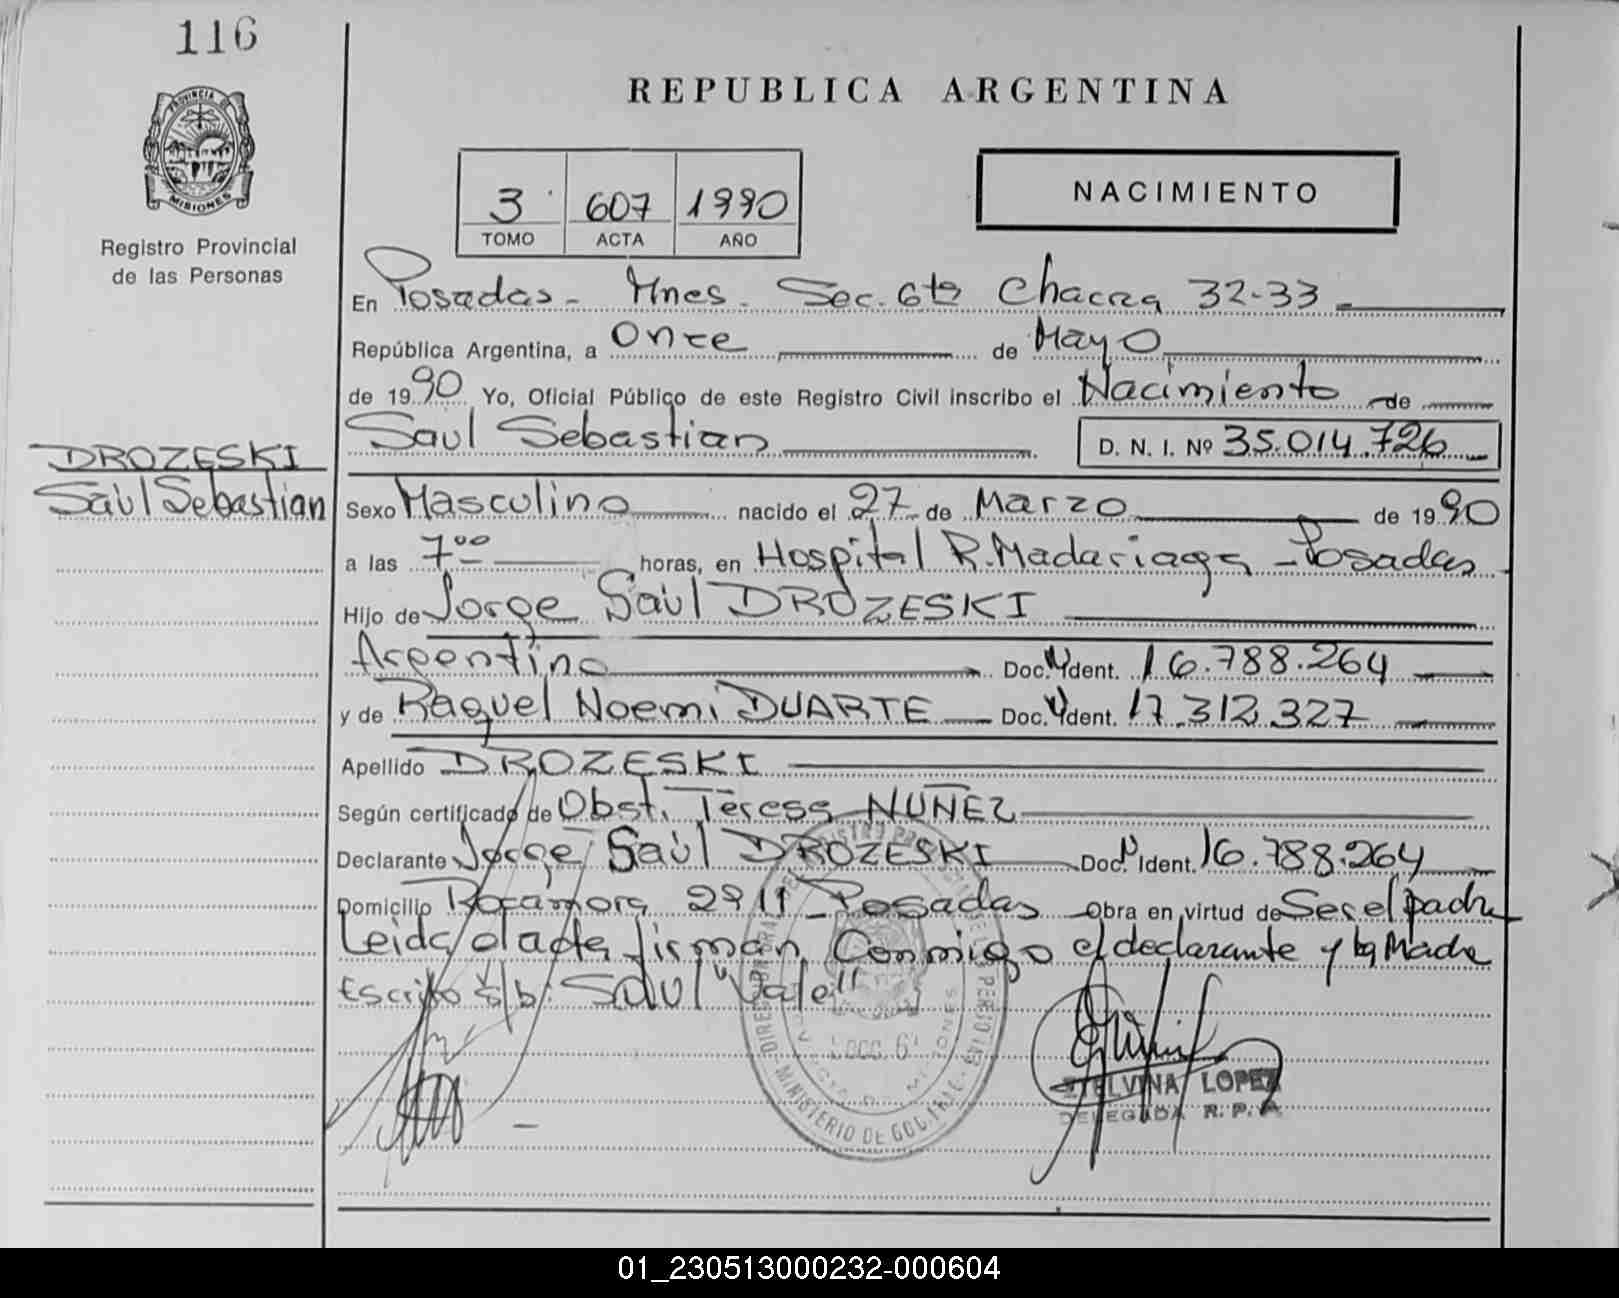 116
REPUBLICA ARGENTINA
PROVINCIA DE
MISIONES
Registro Provincial
de las Personas
3 607 1990
TOMO ACTA AÑO
NACIMIENTO
En Posadas - Mnes. Sec. 6ta Chacra 32-33
República Argentina, a Once de Mayo
de 1990 Yo, Oficial Público de este Registro Civil inscribo el Nacimiento de
Saul Sebastian D. N. I. Nº 35.014.726
DROZESKI
Saúl Sebastian
Sexo Masculino nacido el 27 de Marzo de 1990
a las 7 00 horas, en Hospital R. Madariaga - Posadas
Hijo de Jorge Saúl DROZESKI
Argentino Doc. N Ident. 16.788.264
y de Raquel Noemi DUARTE Doc. N Ident. 17.312.327
Apellido DROZESKI
Según certificado de Obst. Teresa NUÑEZ
Declarante Jorge Saúl DROZESKI Doc. N Ident. 16.788.264
Domicilio Rocamora 2911 Posadas Obra en virtud de Ser el padre
Leida el acta, firman Conmigo el declarante y la Madre
Escrito s/b: SAUL "Vale"
MINISTERIO DE GOB.
ETELVINA LOPEZ
DELEGADA R. P.
01_230513000232-000604